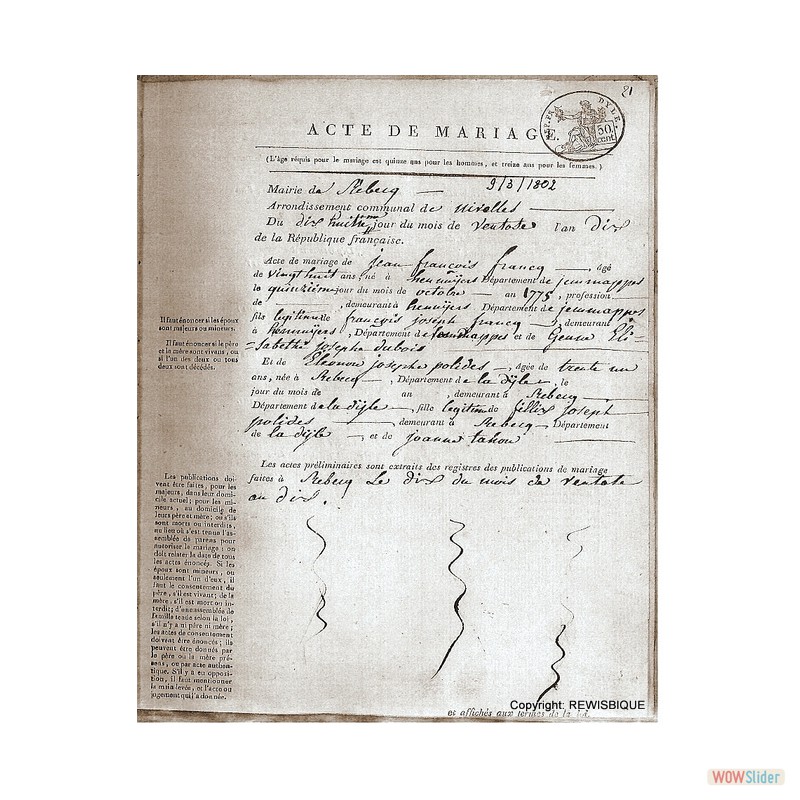 81
DEP. DE DYLE.
50 cent
ACTE DE MARIAGE.
(L'âge réquis pour le mariage est quinze ans pour les hommes, et treize ans pour les femmes.)
Mairie de Rebecq — 9/3/1802
Arrondissement communal de nivelles
Du dix huitièm jour du mois de ventose l'an dix
de la République française.
Acte de mariage de jean françois francq —, âgé
de vingt huit ans, né à hennuijers Département de jemmappes
le quinzième jour du mois de octobre — an 1775, profession
de —, demeurant à hennuijers Département de jemmappes
fils legitime de françois joseph francq —, demeurant
à hennuijers, Département de jemmappes et de Genne Eli-
sabethe josephe dubois
Et de Eleonore josephe polides —, âgée de trente un
ans, née à Rebecq —, Département de la dijle, le
jour du mois de an , demeurant à Rebecq —
Département de la dijle —, fille legitime de fellix joseph
polides — demeurant à Rebecq — Département
de la dijle —, et de joanne tahon
Les actes préliminaires sont extraits des registres des publications de mariage
faites à Rebecq Le dix du mois de ventose
an dix.
Il faut énoncer si les époux
sont majeurs ou mineurs.
Il faut énoncer si le père
et la mère sont vivans, ou
si l'un des deux ou tous
deux sont décédés.
Les publications doi-
vent être faites, pour les
majeurs, dans leur domi-
cile actuel; pour les mi-
neurs, au domicile de
leurs père et mère; ou s'ils
sont morts ou interdits,
au lieu où s'est tenue l'as-
semblée de parens pour
autoriser le mariage: on
doit relater la date de tous
les actes énoncés. Si les
époux sont mineurs, ou
seulement l'un d'eux, il
faut le consentement du
père, s'il est vivant; de la
mère, s'il est mort ou in-
terdit; d'une assemblée de
famille tenue selon la loi,
s'il n'y a ni père ni mère;
les actes de consentement
doivent être énoncés; ils
peuvent être donnés par
le père ou la mère pré-
sens, ou par acte authen-
tique. S'il y a eu opposi-
tion, il faut mentionner
la main levée, et l'acte ou
jugement qui l'a donnée.
et affichés aux termes de la loi.
Copyright: REWISBIQUE
WOWSlider